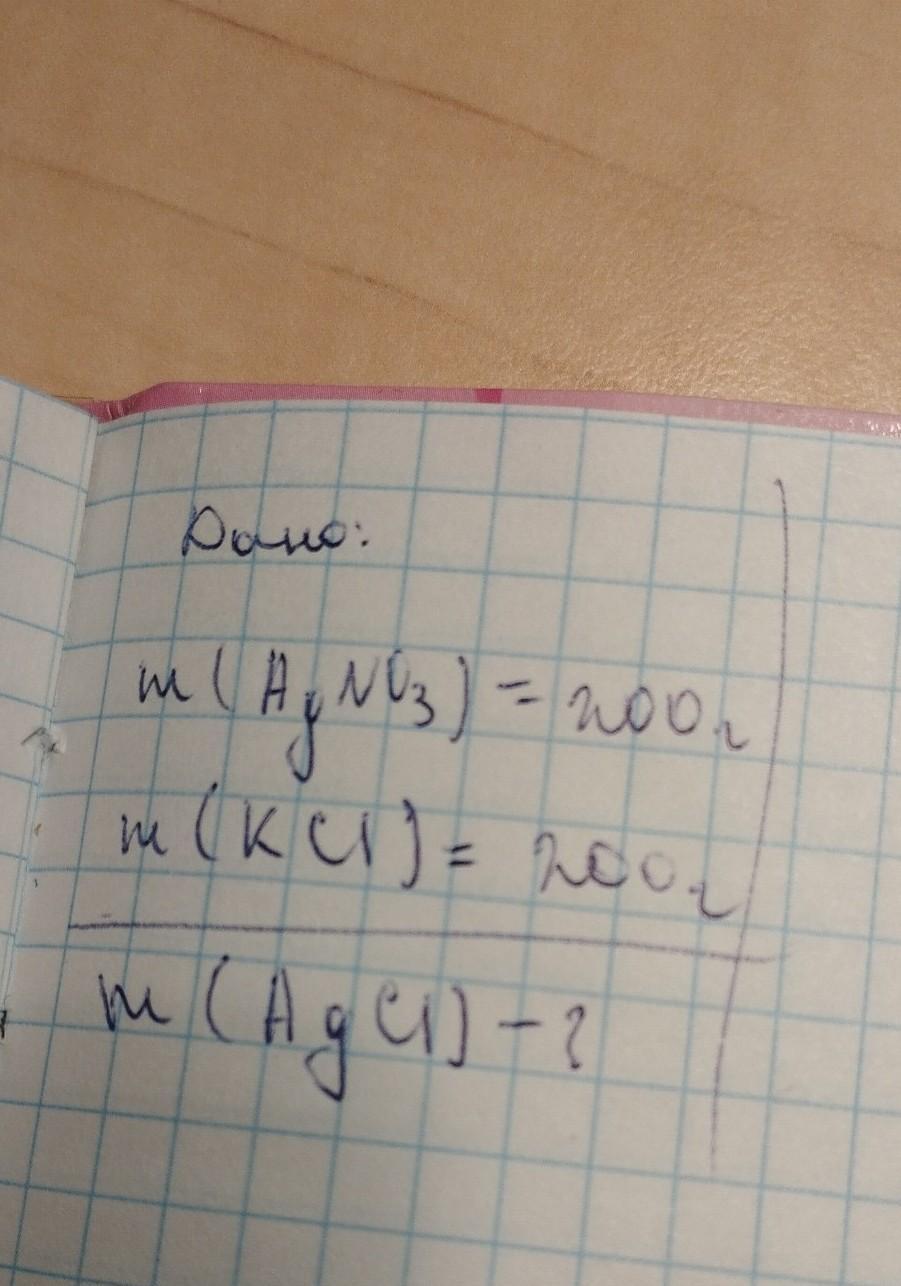 Дано:
m(AgNO3) = 200г
m(KCl) = 200г
m(AgCl) - ?